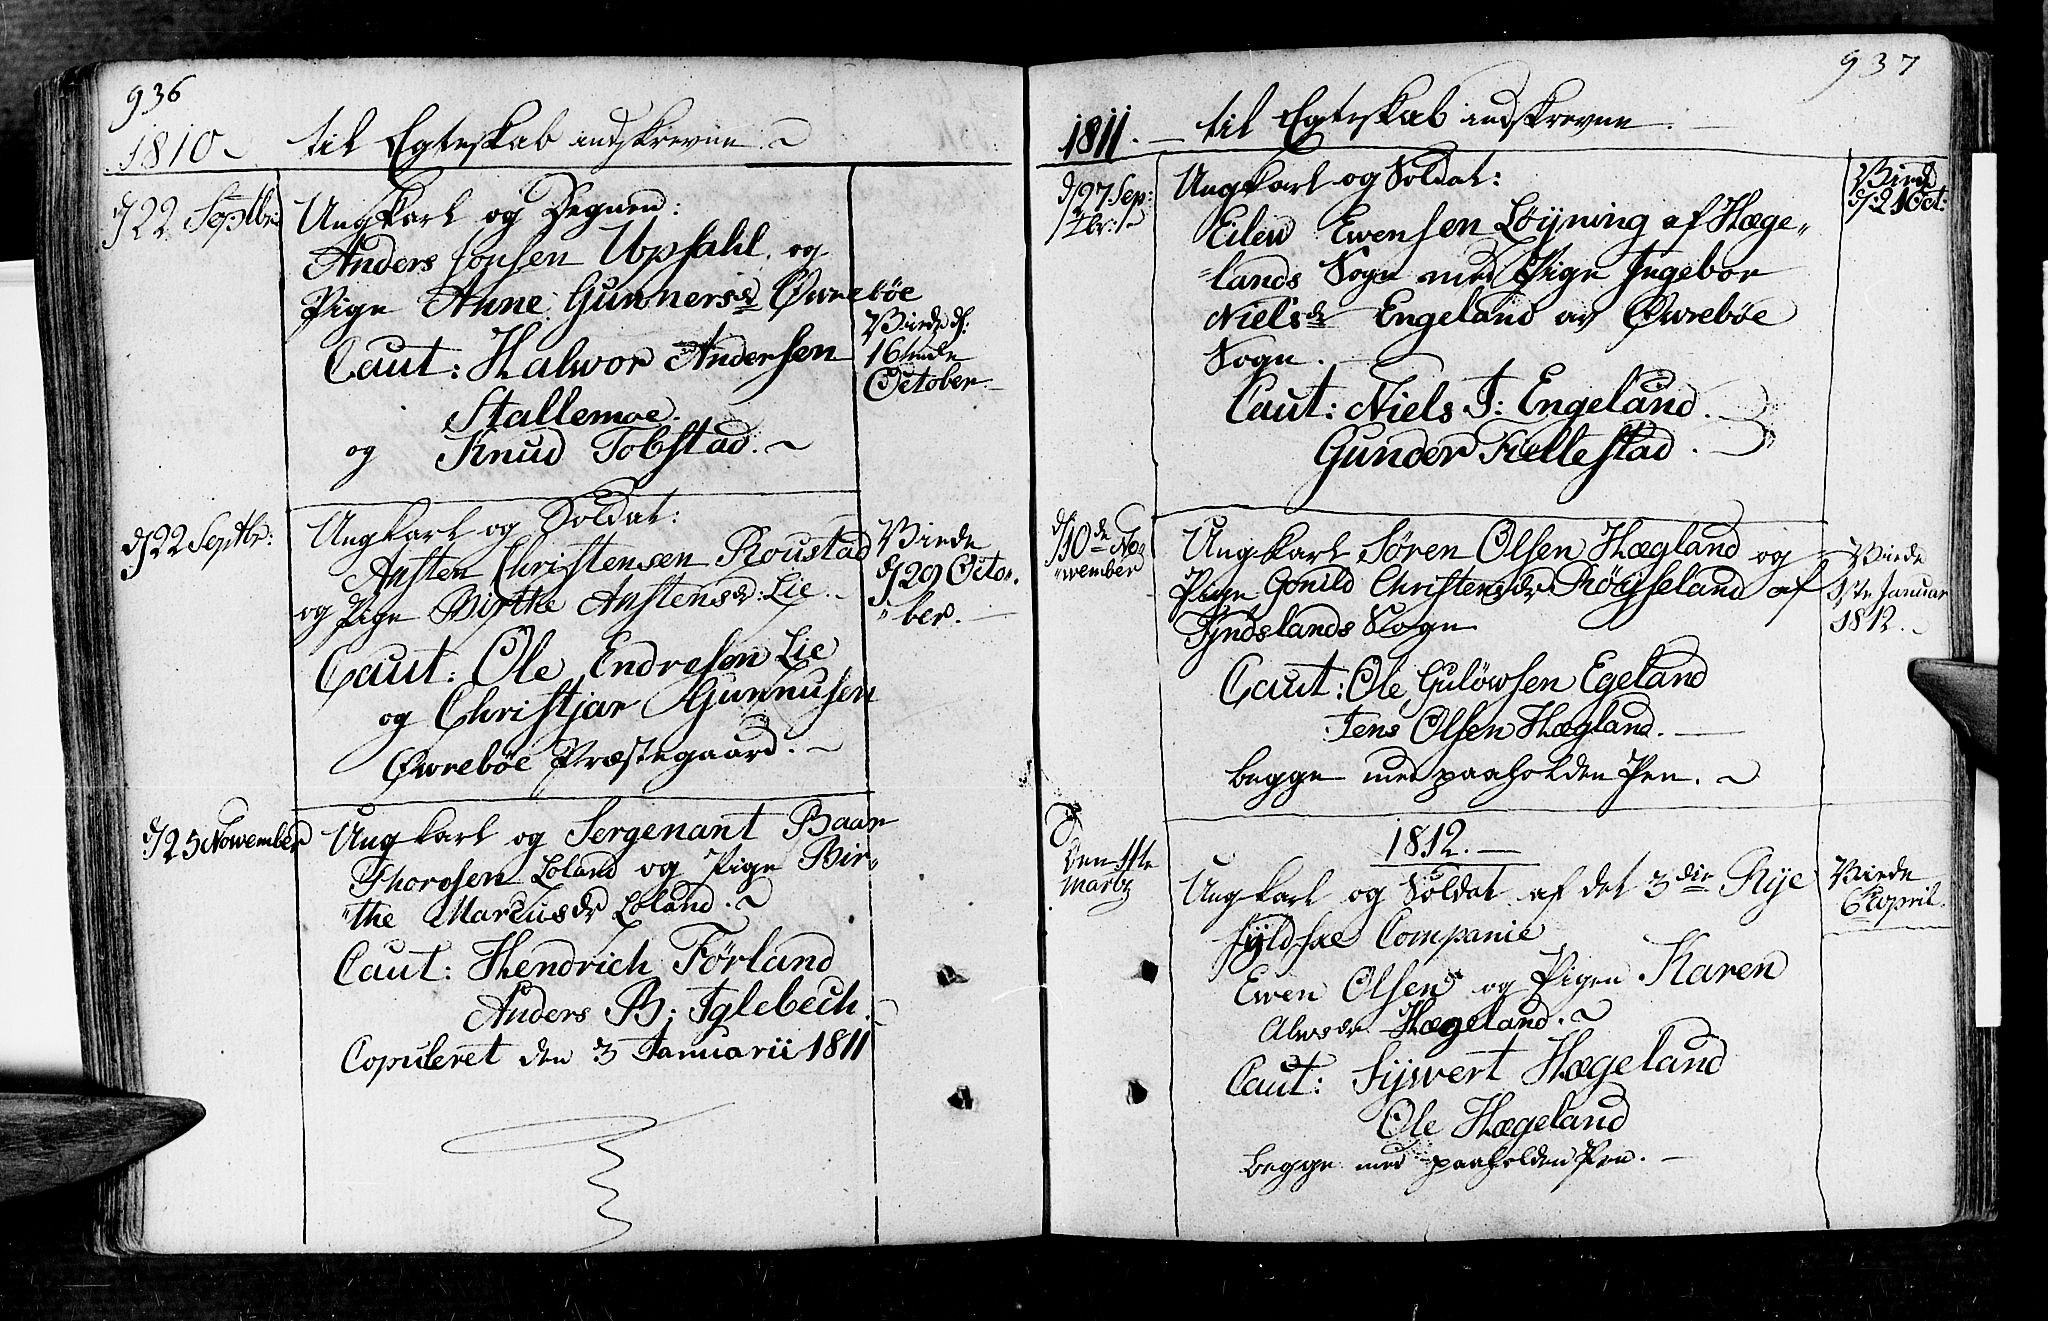 936
1810 til Egteskab indskrevne
d/22 Septbr:
Ungkarl og Degnen:
Anders Jonsen Upsahl og
Pige Anne Gunnersdr Øwrebøe
Caut: Halwor Andersen
Stallemoe.
og Knud Tobstad.
Viede d:
16tende
October
d/22 Septbr:
Ungkarl og Soldat:
Austen Christensen Roustad
og Pige Birthe Austensdr: Lie
Caut: Ole Endresen Lie
og Christjan Gunnusen
Øwrebøe Præstegaard.
Viede
d/29 Octo„
„ber.
d/25 Nowember
Ungkarl og Sergenant Baar
Thorosen Loland og Pige Bir„
„the Marcusdr Loland.
Caut: Hendrich Förland
Anders B: Iglebech.
Copuleret den 3 Januarii 1811
937
1811. til Egteskab indskrevne.
d/27 Sep:
/tbr:/
Ungkarl og Soldat:
Eilew Ewensen Löyning af Hæge„
„lands Sogn med Pige Ingebor
Nielsdr Engeland av Øwrebøe
Sogn.
Caut: Niels T: Engeland.
Gunder Fiellestad.
Viede
d/21 Oct:
d/10de No„
„wember
Ungkarl Sören Olsen Hægland og
Pige Gonild Christensdr Röysseland af
Tyndslands Sogn
Caut: Ole Gulöwsen Egeland
Jens Olsen Hægland.
begge med paaholden Pen.
Viede
1ste Januar
1812.
1812.
Den 11te
Martz
Ungkarl og Soldat af det 3die Rye
fyldske Companie
Ewen Olsen og Pigen Karen
Alwsdr Hægeland.
Caut: Sywert Hægeland
Ole Hægeland
begge med paaholden Pen.
Viede
6 April.